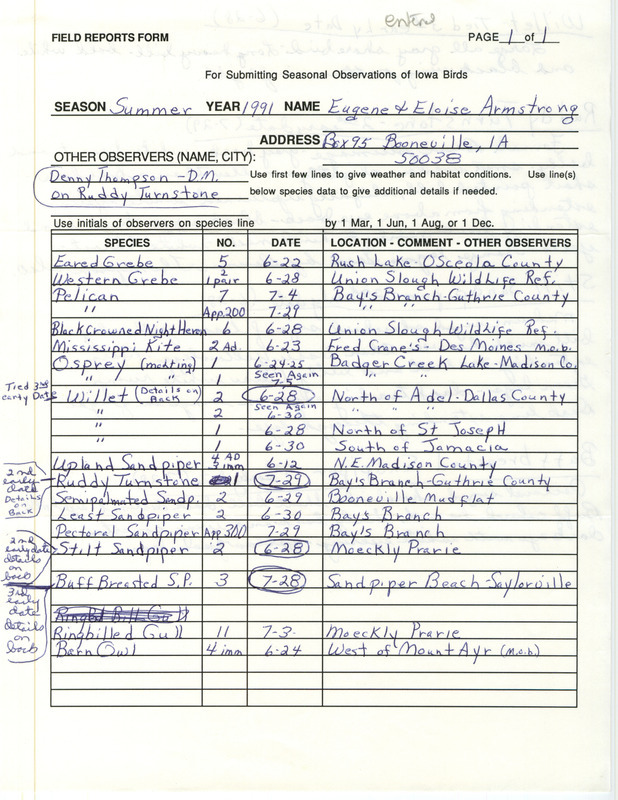 entire
FIELD REPORTS FORM PAGE 1 of 1
For Submitting Seasonal Observations of Iowa Birds
SEASON Summer YEAR 1991 NAME Eugene & Eloise Armstrong
ADDRESS Box 95 Booneville, IA
50038
OTHER OBSERVERS (NAME, CITY):
Denny Thompson - D.M.
on Ruddy Turnstone
Use first few lines to give weather and habitat conditions. Use line(s)
below species data to give additional details if needed.
Use initials of observers on species line by 1 Mar, 1 Jun, 1 Aug, or 1 Dec.
SPECIES NO. DATE LOCATION - COMMENT - OTHER OBSERVERS
Eared Grebe 5 6-22 Rush Lake - Osceola County
Western Grebe 2 1 pair 6-28 Union Slough Wildlife Ref.
Pelican 7 7-4 Bay's Branch-Guthrie County
" App. 200 7-29 " "
Black Crowned Night Heron 6 6-28 Union Slough Wildlife Ref.
Mississippi Kite 2 Ad. 6-23 Fred Crane's - Des Moines m.o.b.
Osprey (molting) 1 6-24-25 Badger Creek Lake-Madison Co.
" " 1 Seen Again 7-5 " " "
Tied 3rd early Date Willet (Details on Back) 2 6-28 North of Adel - Dallas County
" 2 Seen Again 6-30 " " "
" 1 6-28 North of St Joseph
" 1 6-30 South of Jamacia
Upland Sandpiper 4 AD 3 imm 6-12 N.E. Madison County
2nd early date Details on Back
Ruddy Turnstone 1 7-29 Bay's Branch-Guthrie County
Semipalmated Sandp. 2 6-29 Booneville Mudflat
Least Sandpiper 2 6-30 Bays Branch
Pectoral Sandpiper App 300 7-29 Bay's Branch
2nd early date details on back
Stilt Sandpiper 2 6-28 Moeckly Prarie
Buff Breasted S.P. 3 7-28 Sandpiper Beach-Saylorville
3rd early date details on back
Ringbd Bill Gull
Ringbilled Gull 11 7-3 Moeckly Prarie
Barn Owl 4 imm 6-24 West of Mount Ayr (m.o.b)